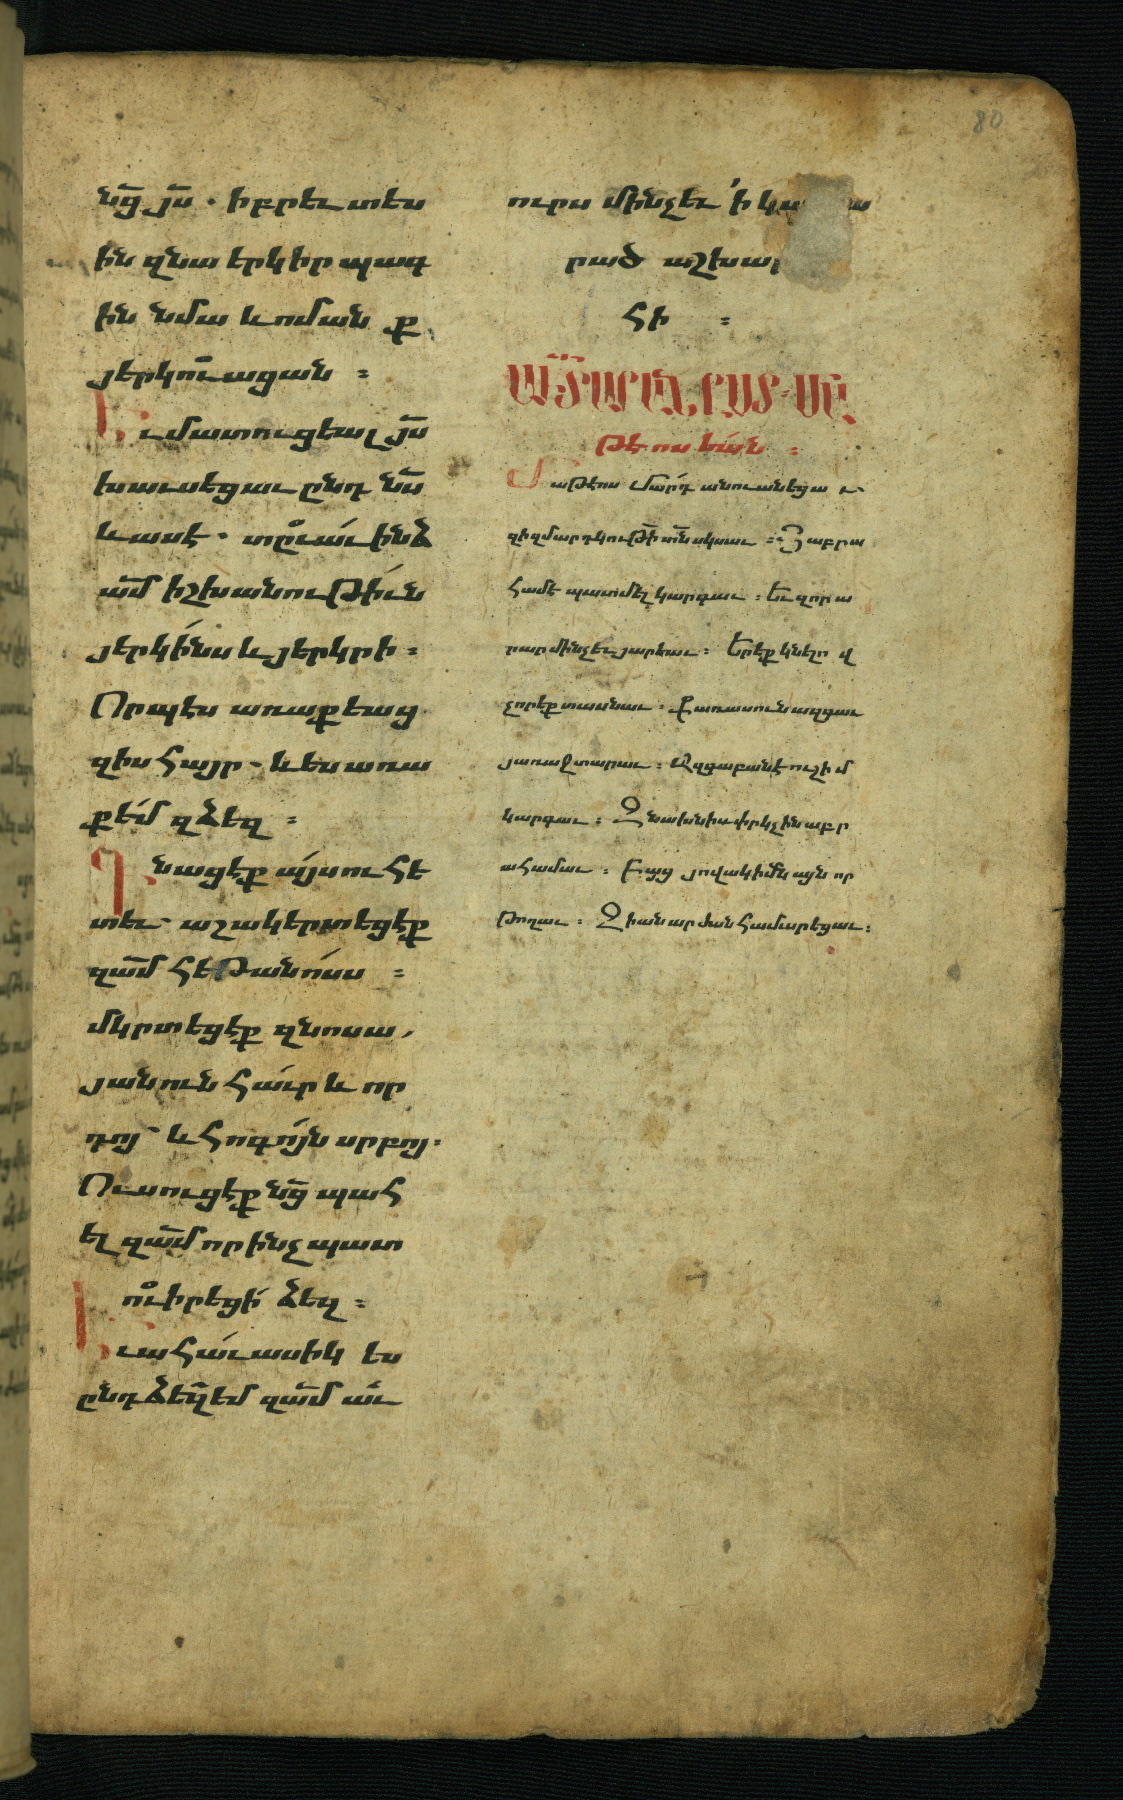 նց̄ յս̄ · իբրեւ տես
ին զնա երկիր պագ
ին նմա և ոմանք
յերկուացան ։
Եւ մատուցեալ յս̄
խաւսեցաւ ընդ նս̄
և ասէ · տըւաւ ինձ
ամ̄ իշխանութիւն
յերկինս և յերկրի ։
Որպէս առաքեաց
զիս հայր · և ես առա
քեմ զձեզ ։
Գնացէք այսուհե
տեւ աշակերտեցէք
զամ̄ հեթանոսս ։
մկրտեցէք զնոսա ,
յանուն հաւր և որ
դոյ և հոգոյն սրբոյ ·
Ուսուցէք նց̄ պահ
ել զամ̄ որ ինչ պատ
ուիրեցի ձեզ ։
Եւ ահաւասիկ ես
ընդ ձեզ եմ զամ̄ աւ
80
ուրս մինչեւ ՚ի կա
րած աշխար
հի ։
թէոսեան ։
Մաթէոս մարդ անուանեցաւ
զի զմարդկութի̄ տն̄ սկսաւ ։ Յաբրա
համէ պատմել կարգաւ ։ Եւ զորա
րար մինչեւ յարեաւ ։ Երեք կնելով
չորեքտասնաւ · Քառասուն ազգաւ
յառաջ տարաւ ։ Ազգաբանէ ուշիմ
կարգաւ ։ Զնախնիս փրկչին աբր
ահամաւ ։ Բայց յովակիմն այն որ
թողաւ ։ Չիանարժան համարեցաւ ։